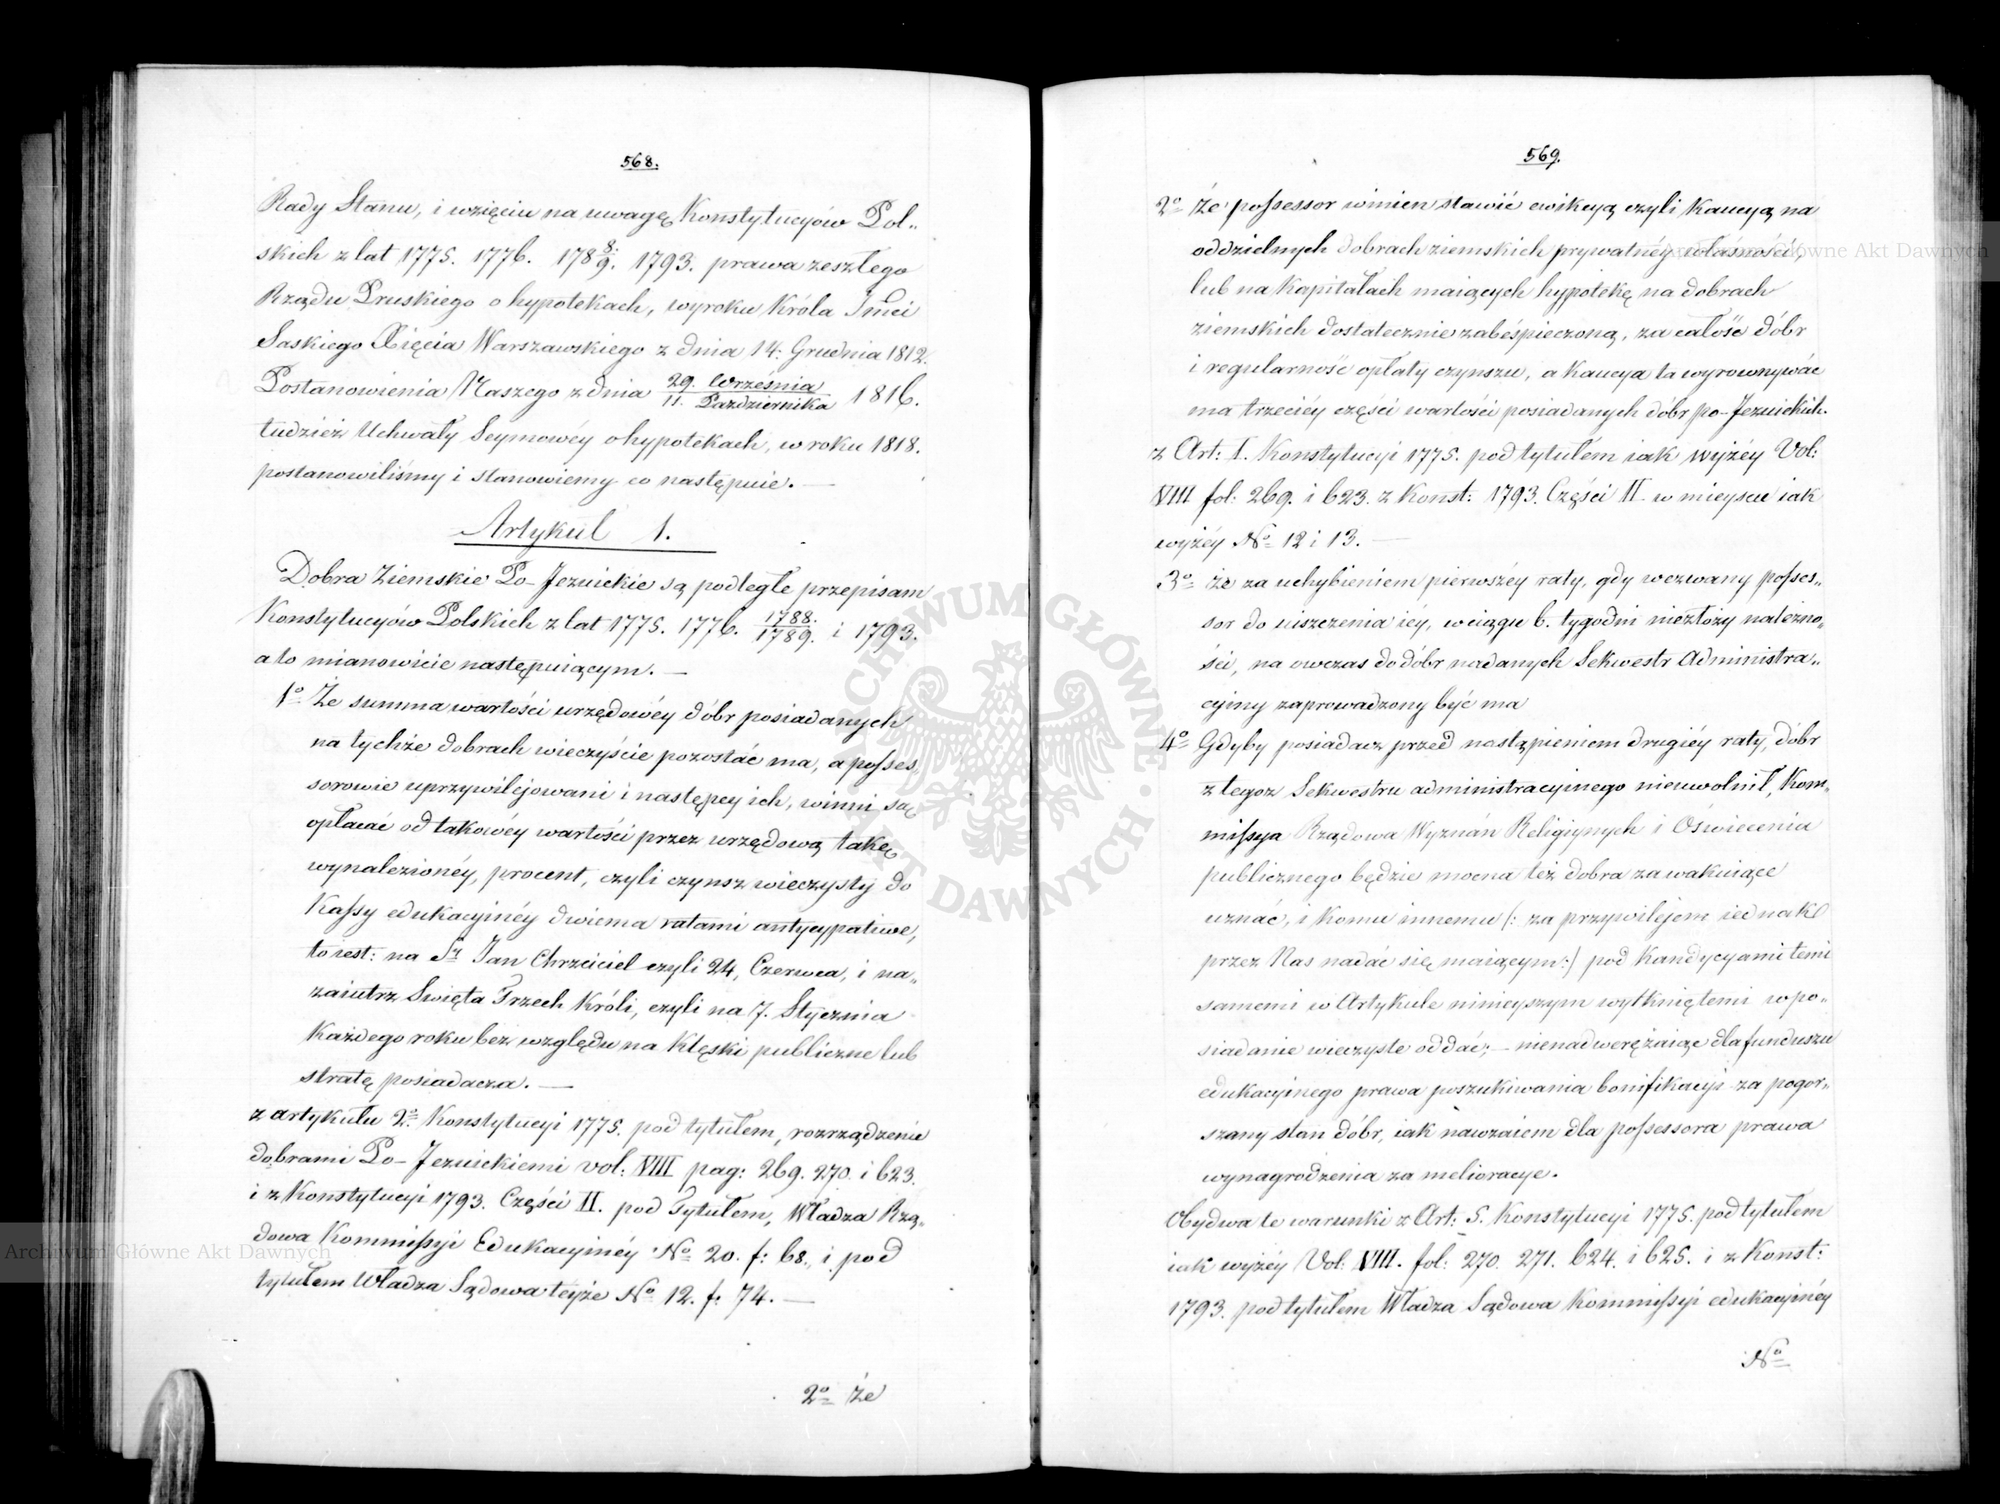 568.
Rady Stanu, i wzięciu na uwagę Konstytucyów Pol-
skich z lat 1775. 1776. 178 8/9. 1793. prawa zeszłego
Rządu Pruskiego o hypotekach, wyroku Króla Jmci
Saskiego Xięcia Warszawskiego z dnia 14: Grudnia 1812.
Postanowienia Naszego z dnia 29. Września / 11. Października 1816.
tudzież Uchwały Seymowéy o hypotekach, w roku 1818.
postanowiliśmy i stanowiemy co następuie. —
Artykuł 1.
Dobra Ziemskie Po-Jezuickie są podległe przepisam
Konstytucyów Polskich z lat 1775. 1776. 1788./1789. i 1793.
a to mianowicie następuiącym. —
1o Że summa wartości urzędowéy dóbr posiadanych
na tychże dobrach wieczyście pozostać ma, a posses-
sorowie uprzywilejowani i następcy ich, winni są
opłacać od takowéy wartości przez urzędową taxę
wynalezionéy, procent, czyli czynsz wieczysty do
Kassy edukacyinéy dwiema ratami antycypative,
to iest: na St Jan Chrzciciel czyli 24, Czerwca, i na-
zaiutrz Święta Trzech Króli, czyli na 7. Stycznia
każdego roku bez względu na klęski publiczne lub
stratę posiadacza. —
z artykułu 2o Konstytucyi 1775. pod tytułem, rozrządzenie
dobrami Po-Jezuickiemi vol: VIII pag: 269. 270. i 623.
i z Konstytucyi 1793. Części II. pod Tytułem, Władza Rzą-
dowa Kommissyi Edukacyinéy No 20. f: 68., i pod
tytułem Władza Sądowa teyże No 12. f: 74. —
2o Że
569.
2o Że possessor winien stawić ewikcyą czyli Kaucyą na
oddzielnych dobrach ziemskich prywatnéy własności,
lub na Kapitałach maiących hypotekę na dobrach
ziemskich dostatecznie zabéśpieczoną, za całość dóbr
i regularność opłaty czynszu, a Kaucya ta wyrównywać
ma trzeciéy części wartości posiadanych dóbr po-Jezuickich.
z Art: I. Konstytucyi 1775. pod tytułem iak wyżéy Vol:
VIII fol: 269. i 623. z Konst: 1793. Części II w mieyscu iak
wyżéy No 12 i 13. —
3o że za uchybieniem pierwszéy raty, gdy wezwany posses-
sor do uiszczenia iéy, w ciągu 6. tygodni niezłoży należno-
ści, na owczas do dóbr nadanych Sekwestr Administra-
cyiny zaprowadzony być ma
4o Gdyby posiadacz przed nastąpieniem drugiéy raty, dóbr
z tegoz Sekwestru administracyinego nieuwolnił, Kom-
missya Rządowa Wyznań Religiynych i Oswiecenia
publicznego będzie mocna też dobra za wakuiące
uznać, i komu innemu (: za przywilejem iednak
przez Nas nadać się maiącym:) pod Kandycyami temi
samemi w Artykule ninieyszym wytkniętemi w po-
siadanie wieczyste oddać; — nienadweręzaiąc dla funduszu
edukacyinego prawa poszukiwania bonifikacyi za pogor-
szany stan dóbr, iak nawzaiem dla possessora prawa
wynagrodzenia za melioracye.
Obydwa te warunki z Art: 5. Konstytucyi 1775. pod tytułem
iak wyżéy Vol: VIII. fol: 270. 271. 624. i 625. i z Konst:
1793. pod tytułem Władza Sądowa Kommissyi edukacyinéy
No
ARCHIWUM GŁÓWNE AKT DAWNYCH
Archiwum Główne Akt Dawnych
Archiwum Główne Akt Dawnych